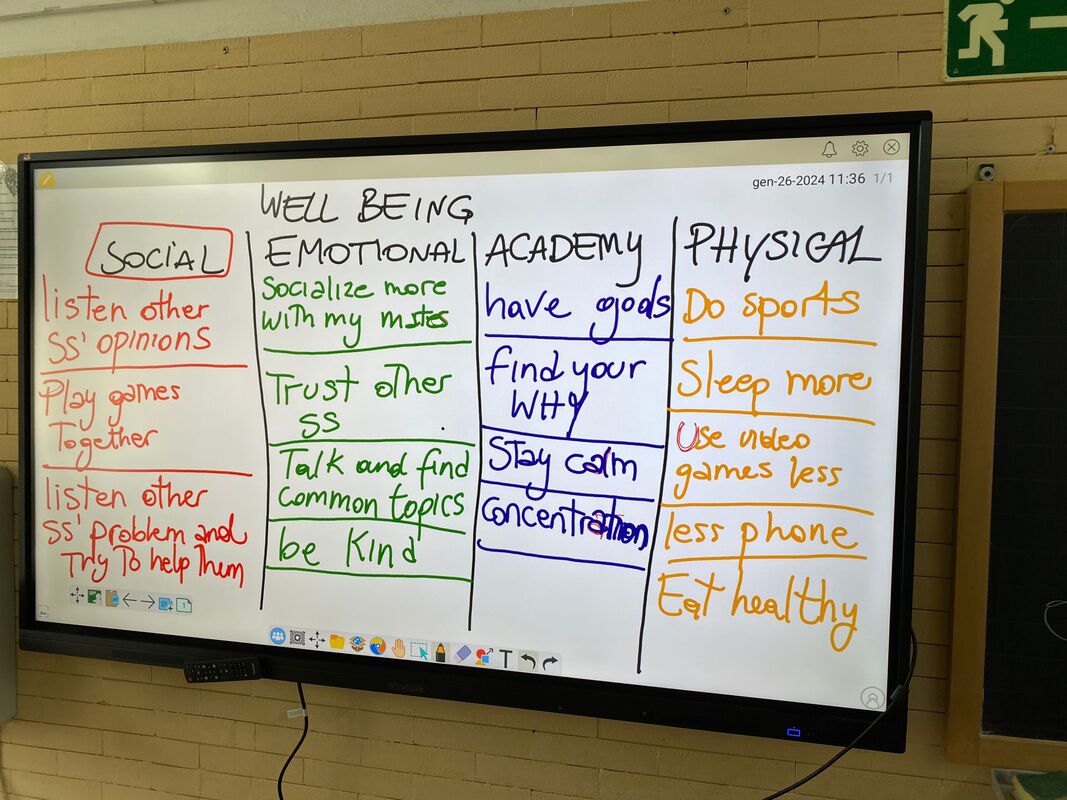 gen-26-2024 11:36 1/1
WELL BEING
SOCIAL
listen other
SS' OPINIONS
Play games
Together
listen other
SS' problem and
Try To help Them
EMOTIONAL
Socialize more
with my mates
Trust other
SS
Talk and find
common topics
be kind
ACADEMY
have goals
find your
WHY
Stay calm
concentration
PHYSICAL
Do sports
Sleep more
Use video
games less
less phone
Eat healthy
T